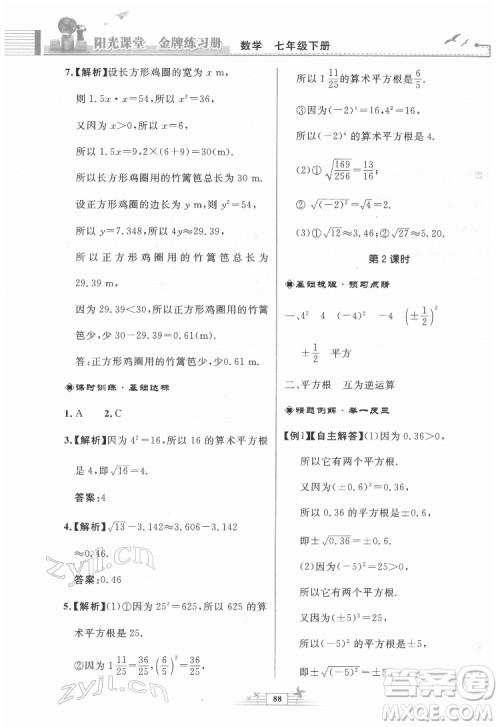 阳光课堂 金牌练习册 数学 七年级下册
7.【解析】设长方形鸡圈的宽为 x m,
则 1.5x·x=54,所以 x²=36,
又因为 x>0,所以 x=6,
所以 1.5x=9,2×(6+9)=30.
所以长方形鸡圈用的竹篱笆总长
为 30 m.
设正方形鸡圈的边长为 y m,
则 y²=54,
所以 y≈7.348,所以 4y≈29.39.
所以正方形鸡圈用的竹篱笆总长为
29.39 m.
因为 29.39<30,所以正方形的竹篱
笆总长少,30-29.39≈0.61.
答:正方形鸡圈用的竹篱笆少,少0.61 m.
课时训练·基础达标
1. A 2. C
3.【解析】因为 4²=16,所以 16 的算术平方根
是 4,即√16=4.
答案:4
4.【解析】√13-3.142≈3.606-3.142≈
0.46.
答案:0.46
5.【解析】(1)①因为 25²=625,所以 625 的算
术平方根是 25.
②因为 1 11/25=36/25,(6/5)²=36/25,
所以 1 11/25 的算术平方根是 6/5.
③因为(-2)⁴=16,4²=16,
所以(-2)⁴的算术平方根是 4.
(2)①√(169/256)=13/16.
②√((-2)²)=√4=2.
(3)①√12≈3.46. ②√27≈5.20.
第 2 课时
基础梳理·预习点睛
一、4² 4 -4 (±1/2)²
±1/2 平方
二、平方根 互为逆运算
精题例解·举一反三
【例1】【自主解答】(1)因为 0.36>0,
所以它有两个平方根.
因为(±0.6)²=0.36,
所以 0.36 的平方根是±0.6,
即±√0.36=±0.6.
(2)因为(-5)²=25>0,
所以它有两个平方根.
因为(±5)²=(-5)²,
所以(-5)²的平方根是±5,
即±√((-5)²)=±5.
88
答案圈
zyjl.cn
MXQE.COM